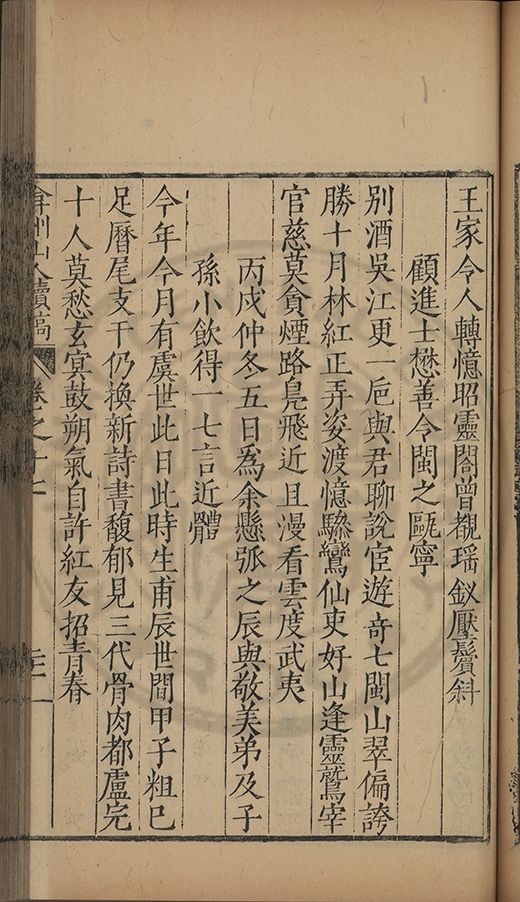 王家令人轉憶昭靈閣曾覩瑶釵壓鬢斜
顧進士懋善令閩之甌寧
別酒吳江更一巵與君聊說宦遊奇七閩山翠偏誇
勝十月林紅正弄姿渡憶驂鸞仙吏好山逢靈鷲宰
官慈莫貪煙路鳧飛近且漫看雲度武夷
丙戍仲冬五日為余懸弧之辰與敬美弟及子
孫小飲得一七言近體
今年今月有虞世此日此時生甫辰世間甲子粗巳
足曆尾支干仍換新詩書馥郁見三代骨肉都盧完
十人莫愁玄冥鼓朔氣自許紅友招青春
弇州山人續稿
卷之十